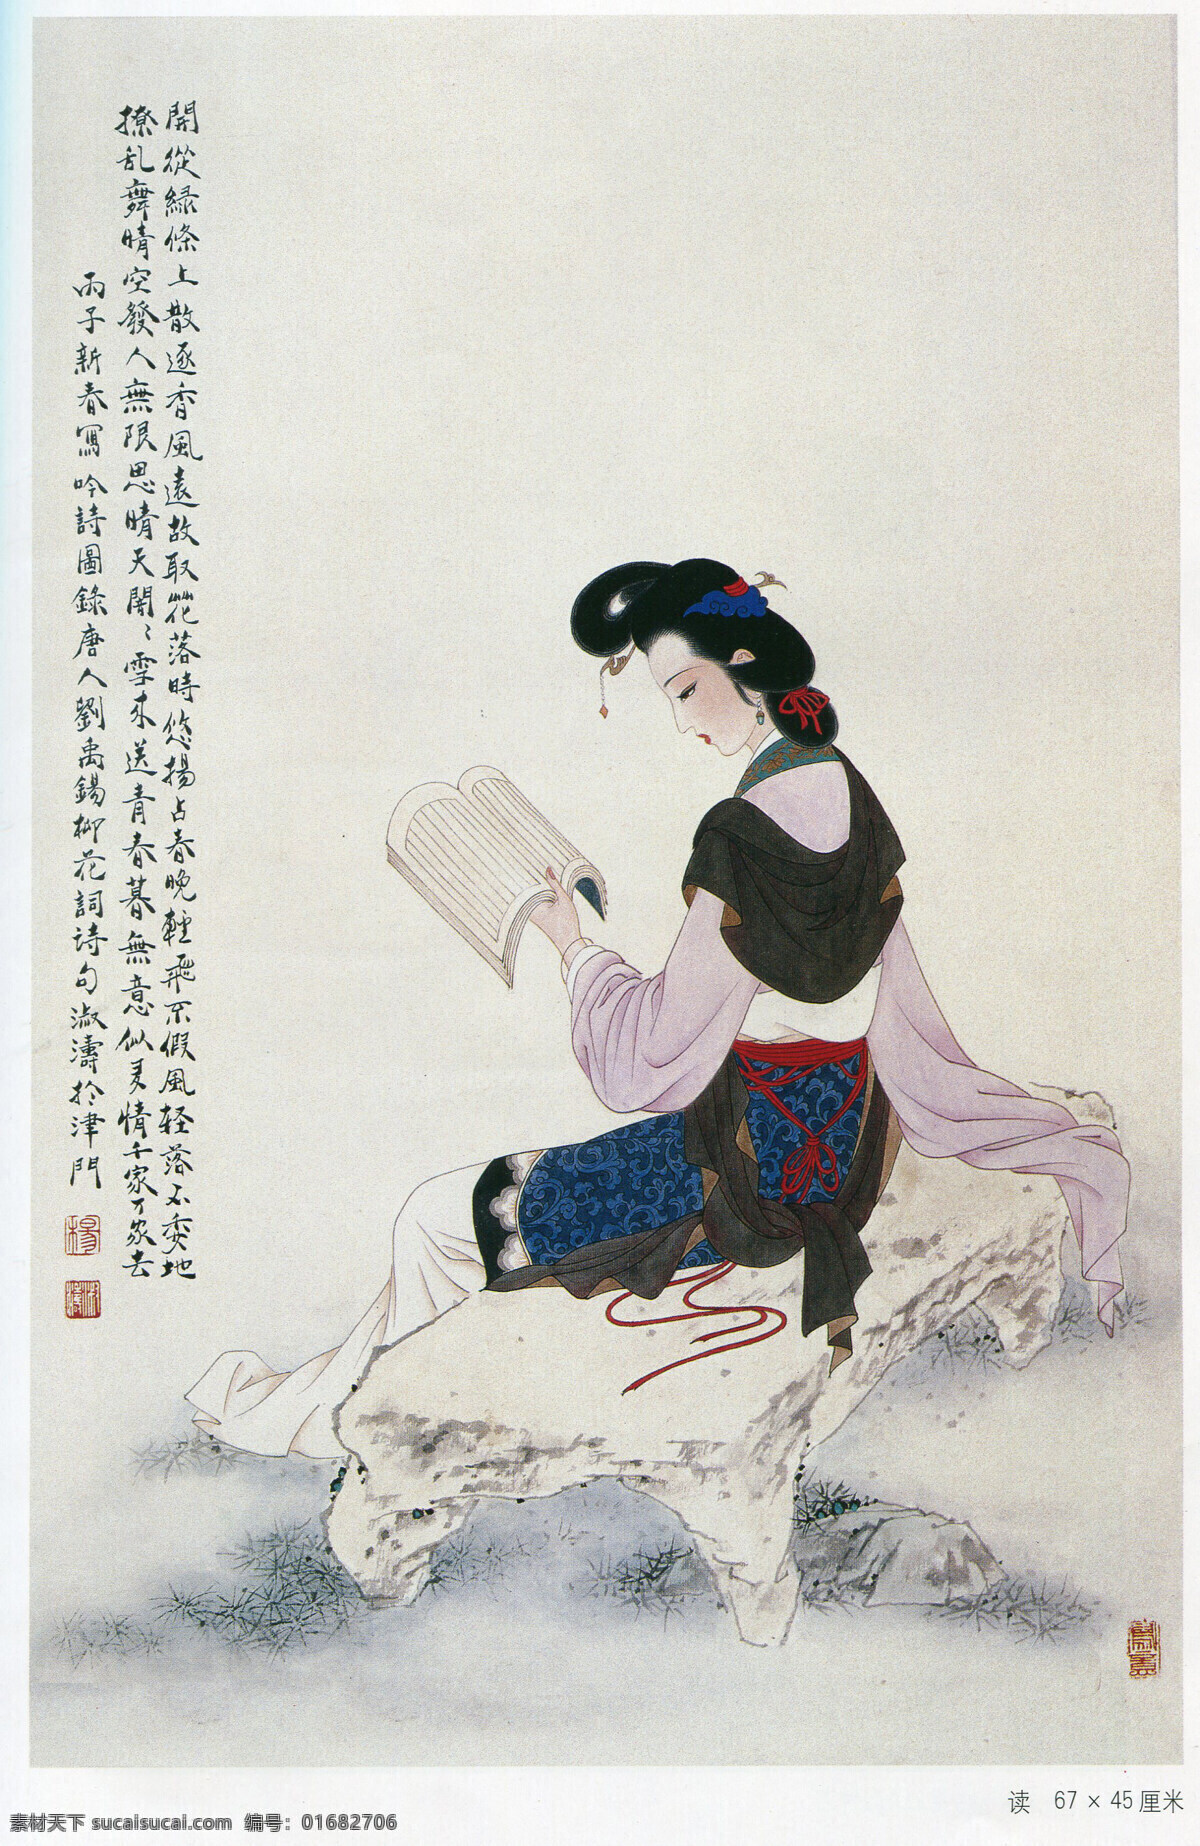 開從緑條上散逐香風遠故取花落時悠揚占春晚輕飛不假風轻落不委地
撩乱舞晴空發人無限思晴天闇〻雪来送青春暮無意似多情千家万家去
丙子新春寫吟詩圖錄唐人劉禹錫柳花詞詩句淑濤於津門
读 67 × 45厘米
素材天下 sucaisucai.com 编号：01682706